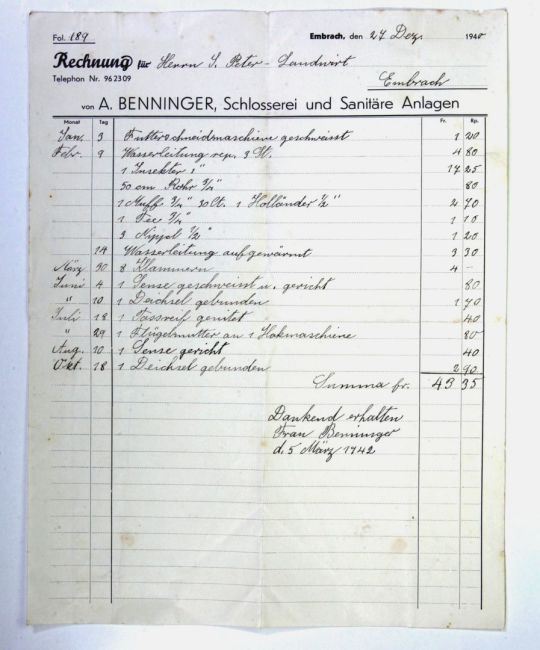 Fol. 189 Embrach, den 27 Dez. 1940
Rechnung für Herrn J. Peter - Landwirt
Telephon Nr. 962309 Embrach
von A. BENNINGER, Schlosserei und Sanitäre Anlagen
Monat Tag Fr. Rp.
Jan. 3 Futterschneidmaschiene geschweisst 1 20
Febr. 9 Wasserleitung rep. 3 St. 4 80
1 1" 17 25
50 cm Rohr 3/4" 80
1 Muff 3/4" 1 Holländer 1/2" 2 70
1 Tee 3/4" 1 10
3 Nippel 1/2" 1 20
14 Wasserleitung aufgewärmt 3 30
März 30 8 Klammern 4 -
Juni 4 1 Sense geschweisst u. gericht 80
" 10 1 Deichsel gebunden 1 70
Juli 18 1 Fassreif genitet 40
" 29 1 Flügelmutter an 1 Hakmaschiene 80
Aug. 10 1 Sense gericht 40
Okt. 18 1 Deichsel gebunden 2 90
Summa fr. 43 35
Dankend erhalten
Frau Benninger
d. 5 März 1942